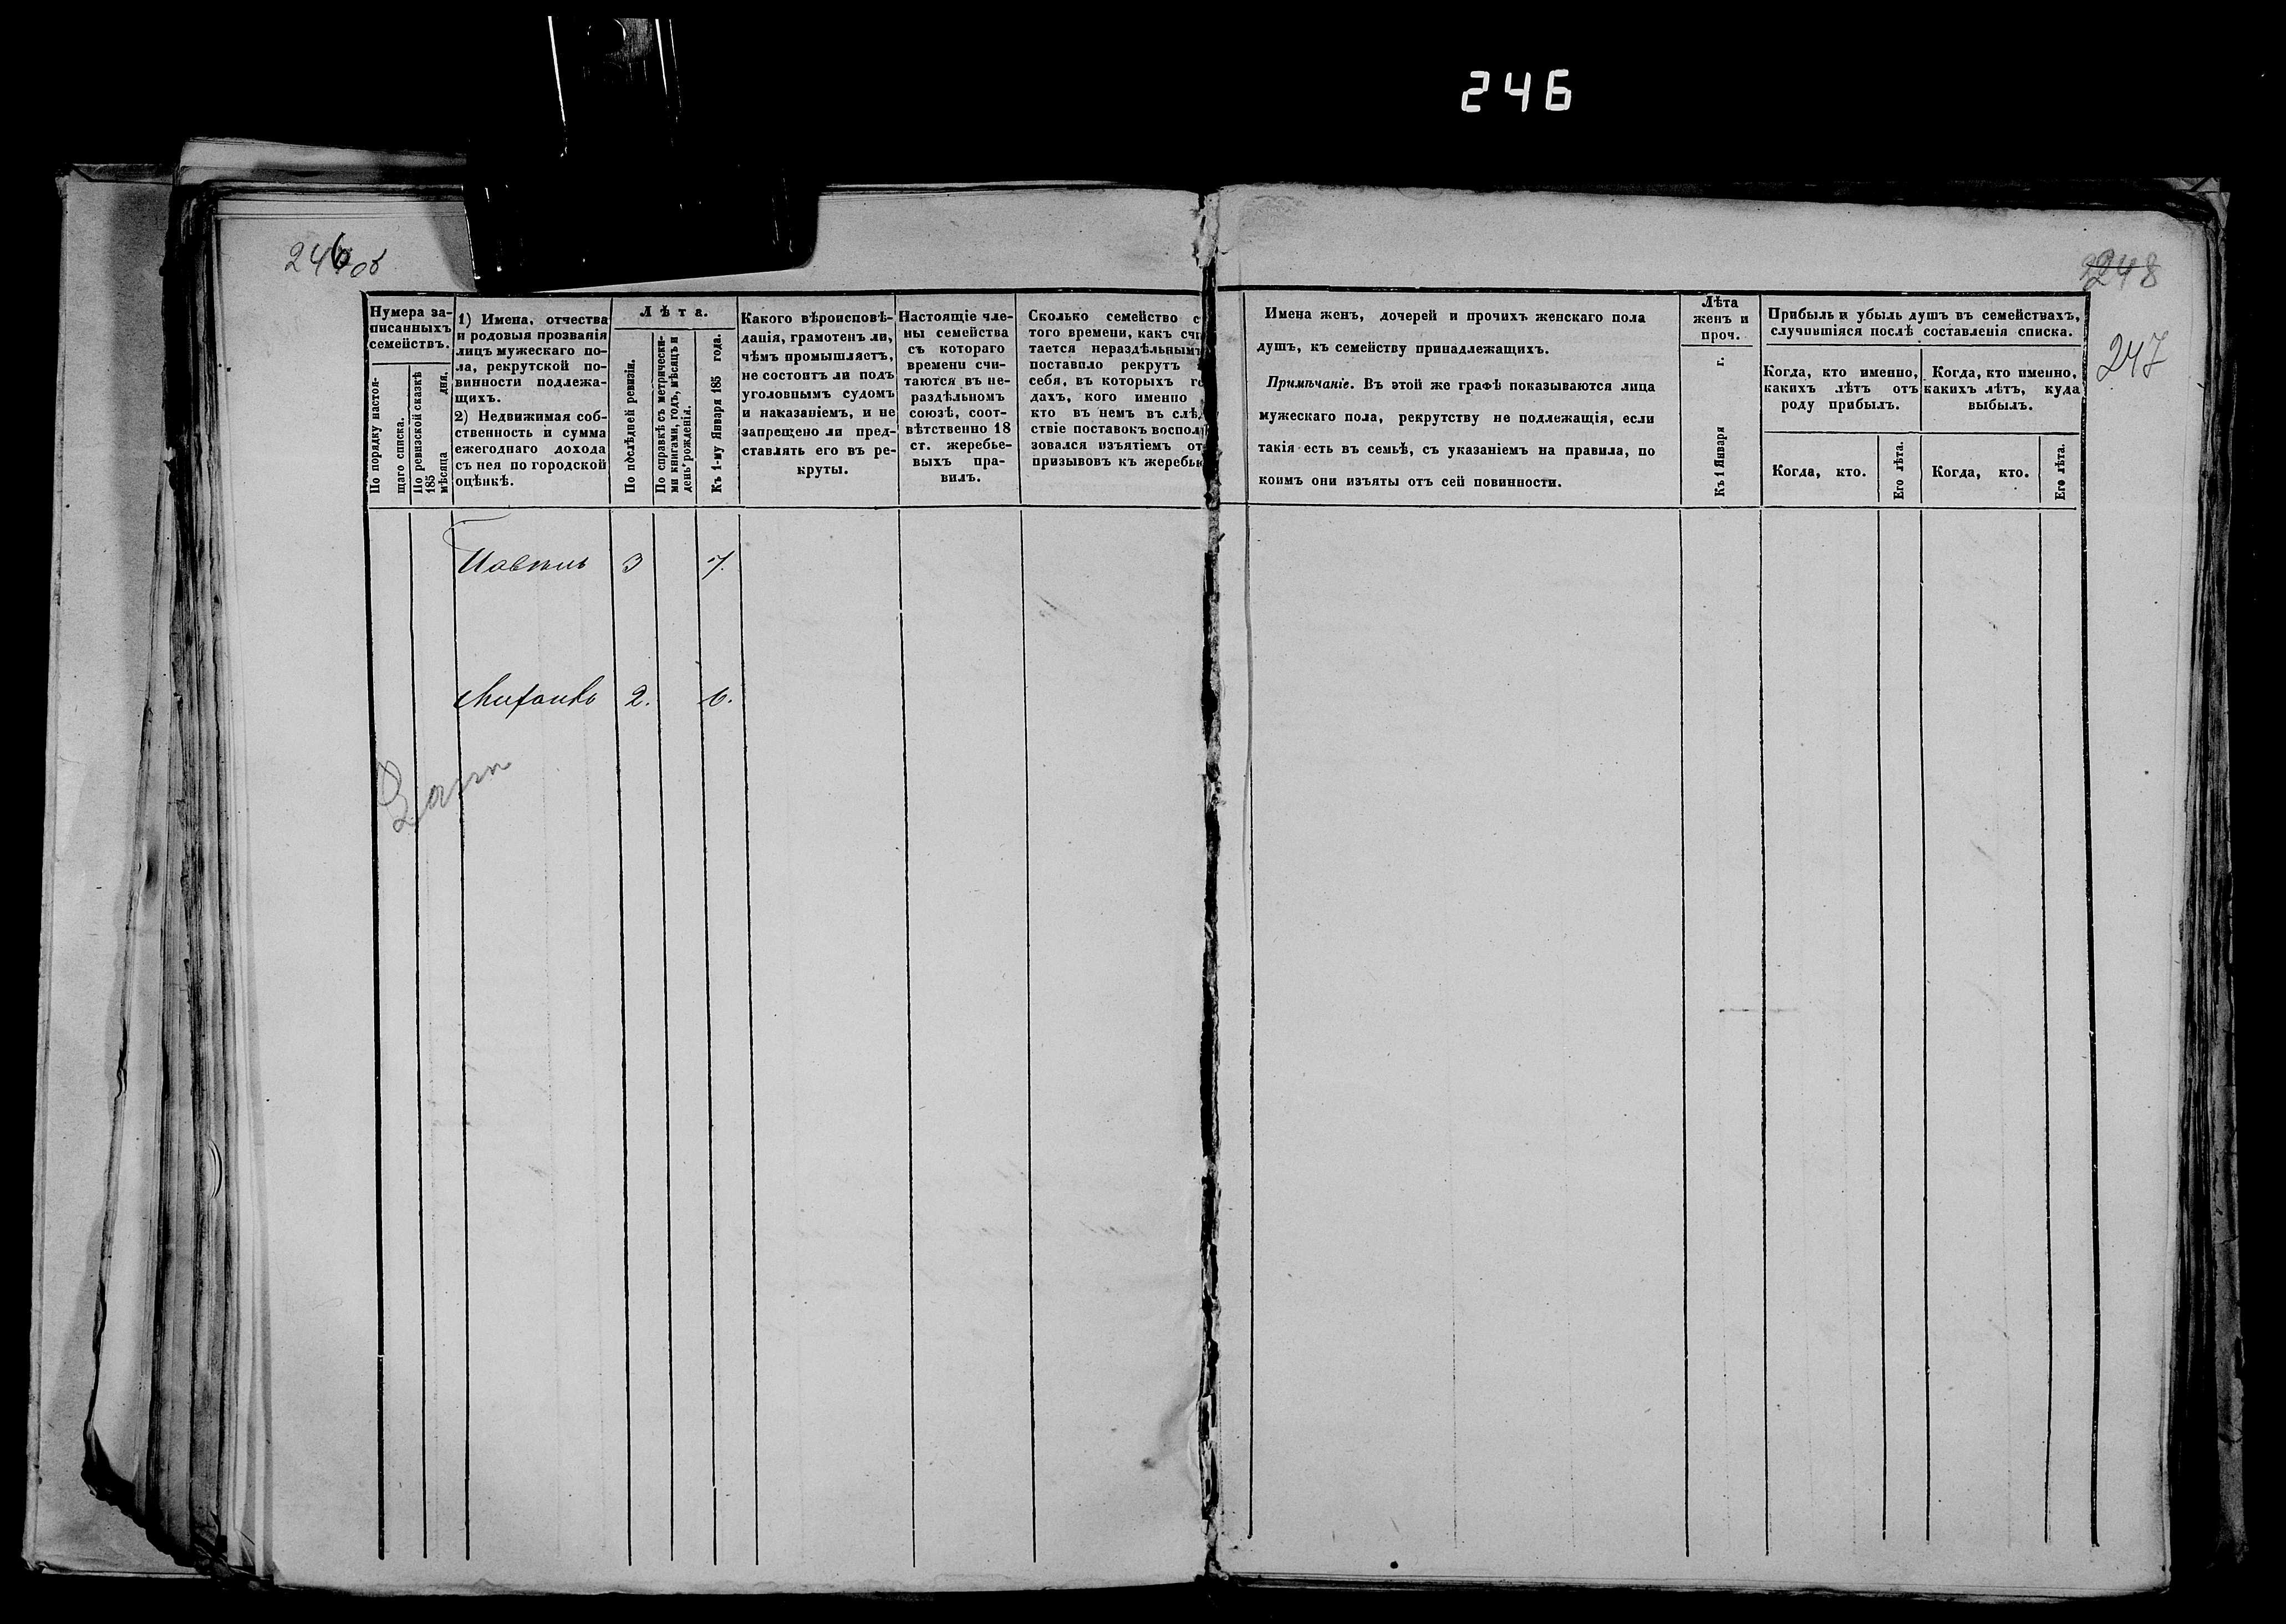 246
246об
248
247
Нумера за-
писанныхъ
семействъ.
По порядку настоя-
щаго списка.
По ревизской сказкѣ
185 мѣсяца дня.
1) Имена, отчества
и родовыя прозванія
лицъ мужескаго по-
ла, рекрутской по-
винности подлежа-
щихъ.
2) Недвижимая соб-
ственность и сумма
ежегоднаго дохода
съ нея по городской
оцѣнкѣ.
Лѣта.
По послѣдней ревизіи.
По справкѣ съ метрически-
ми книгами, годъ, мѣсяцъ и
день рожденія.
Къ 1-му Января 185 года.
Какого вѣроисповѣ-
данія, грамотенъ ли,
чѣмъ промышляетъ,
не состоитъ ли подъ
уголовнымъ судомъ
и наказаніемъ, и не
запрещено ли пред-
ставлять его въ ре-
круты.
Настоящіе чле-
ны семейства
съ котораго
времени счи-
таются въ не-
раздѣльномъ
союзѣ, соот-
вѣтственно 18
ст. жеребье-
выхъ пра-
вилъ.
Сколько семейство с
того времени, какъ счи
тается нераздѣльнымъ
поставило рекрутъ
себя, въ которыхъ го
дахъ, кого именно
кто въ немъ въ слѣд
ствіе поставокъ воспол
зовался изъятіемъ от
призывовъ къ жеребью
Имена женъ, дочерей и прочихъ женскаго пола
душъ, къ семейству принадлежащихъ.
Примѣчаніе. Въ этой же графѣ показываются лица
мужескаго пола, рекрутству не подлежащія, если
такія есть въ семьѣ, съ указаніемъ на правила, по
коимъ они изъяты отъ сей повинности.
Лѣта
женъ и
проч.
Къ 1 Января г.
Прибыль и убыль душъ въ семействахъ,
случившіяся послѣ составленія списка.
Когда, кто именно,
какихъ лѣтъ отъ
роду прибылъ.
Когда, кто именно,
какихъ лѣтъ, куда
выбылъ.
Когда, кто.
Его лѣта.
Когда, кто.
Его лѣта.
3 7.
Михаилъ 2. 6.